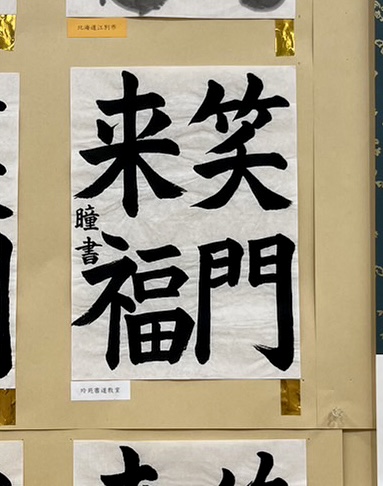 北海道江別市
笑門
来福
瞳書
玲苑書道教室